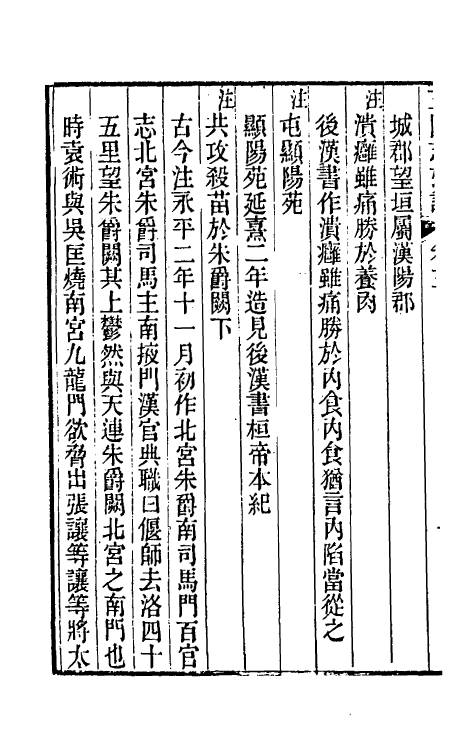 城郡望垣屬漢陽郡
注
潰癰雖痛勝於養肉
後漢書作潰癰雖痛勝於內食內食猶言內陷當從之
注
屯顯陽苑
顯陽苑延熹二年造見後漢書桓帝本紀
注
共攻殺苗於朱爵闕下
古今注永平二年十一月初作北宮朱爵南司馬門百官
志北宮朱爵司馬主南掖門漢官典職曰偃師去洛四十
五里望朱爵闕其上鬱然與天連朱爵闕北宮之南門也
時袁術與吳匡燒南宮九龍門欲脅出張讓等讓等將太